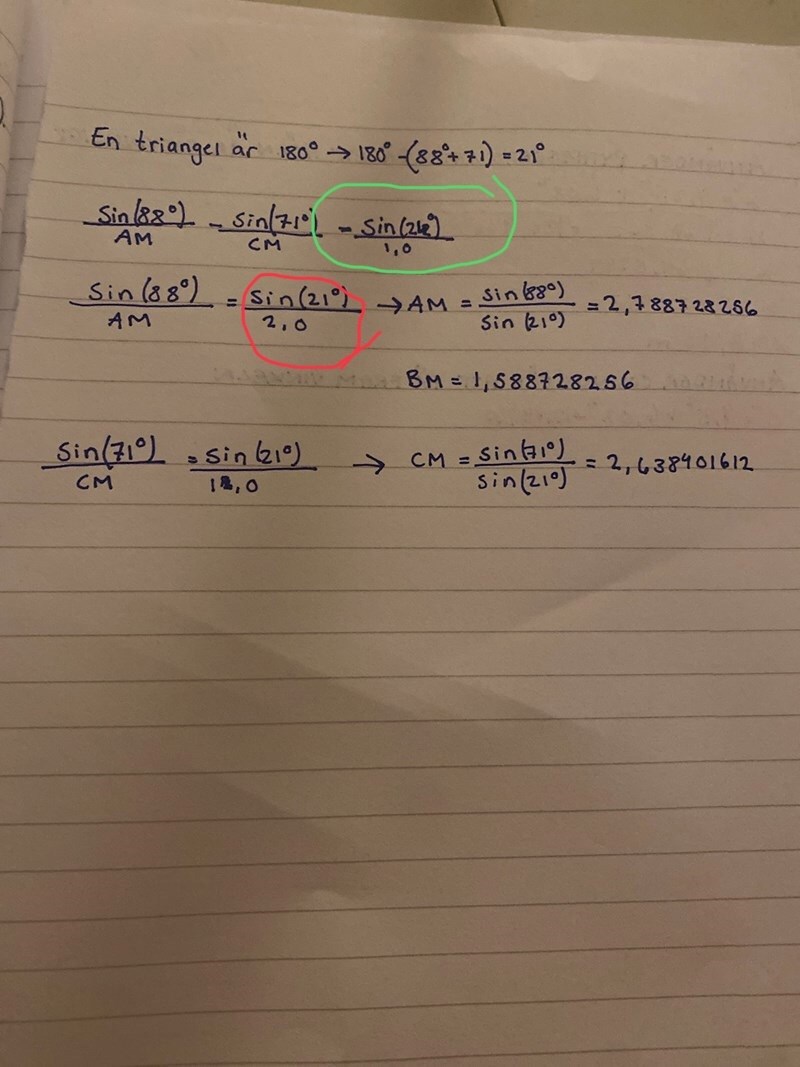 En triangel är 180° → 180° -(88°+71) = 21°
Sin(88°)/AM = Sin(71°)/CM = Sin(21°)/1,0
Sin(88°)/AM = Sin(21°)/2,0 → AM = sin(88°)/sin(21°) = 2,788728256
BM = 1,588728256
Sin(71°)/CM = Sin(21°)/1,0 → CM = sin(71°)/sin(21°) = 2,638401612